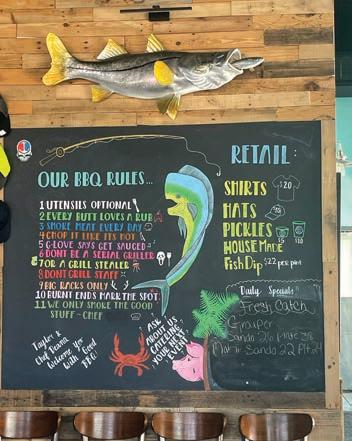 OUR BBQ RULES...
1 UTENSILS OPTIONAL
2 EVERY BUTT LOVES A RUB
3 SMOKE MEAT EVERY DAY
4 CHOP IT LIKE ITS HOT
5 G-LOVE SAYS GET SAUCED
6 DONT BE A SERIAL GRILLER
7 OR A GRILL STEALER
8 DONT GRILL STAFF
9 BIG RACKS ONLY
10 BURNT ENDS MARK THE SPOT
11 WE ONLY SMOKE THE GOOD
STUFF - CHEF
Taylor &
Chef
Welcome You
With Good
BBQ!
ASK
ABOUT US
CATERING
YOUR NEXT
EVENT
RETAIL:
SHIRTS $20
HATS
PICKLES
HOUSE MADE
Fish Dip $22 per pint
Daily Specials!!
Fresh Catch
Grouper
Sando
Sando 22